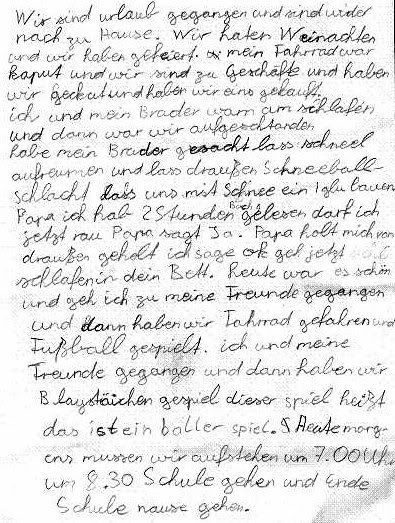 Wir sind urlaub gegangen und sind wider
nach zu Hause. Wir haten Weinachten
und wir haben gefeiert. mein Fahrrad war
kaput und wir sind zu Geschäfte und haben
wir geckut und haber wir eins gekauft.
ich und mein Brader warn am schlafen
und dann war wir aufgeschtanden
habe mein Brader gesacht lass schneel
aufreumen und lass draußen Schneeball-
schlacht dass uns mit Schnee ein Iglu bauen
Papa ich hab 2 Stunden Buch gelesen darf ich
jetzt rau Papa sagt Ja. Papa holt mich von
draußen geholt ich sage ok gel jetzt
schlafen in dein Bett. heute war es schön
und geh ich zu meine Freunde gegangen
und dann haben wir Fahrrad gefahren und
Fußball gespielt. ich und meine
Freunde gegangen und dann haben wir
Blaystäichen gespiel dieser spiel heißt
das ist ein baller spiel. Heute morg-
ens mussen wir aufstehen um 7.00 Uhr
um 8.30 Schule gehen und Ende
Schule nause gehen.